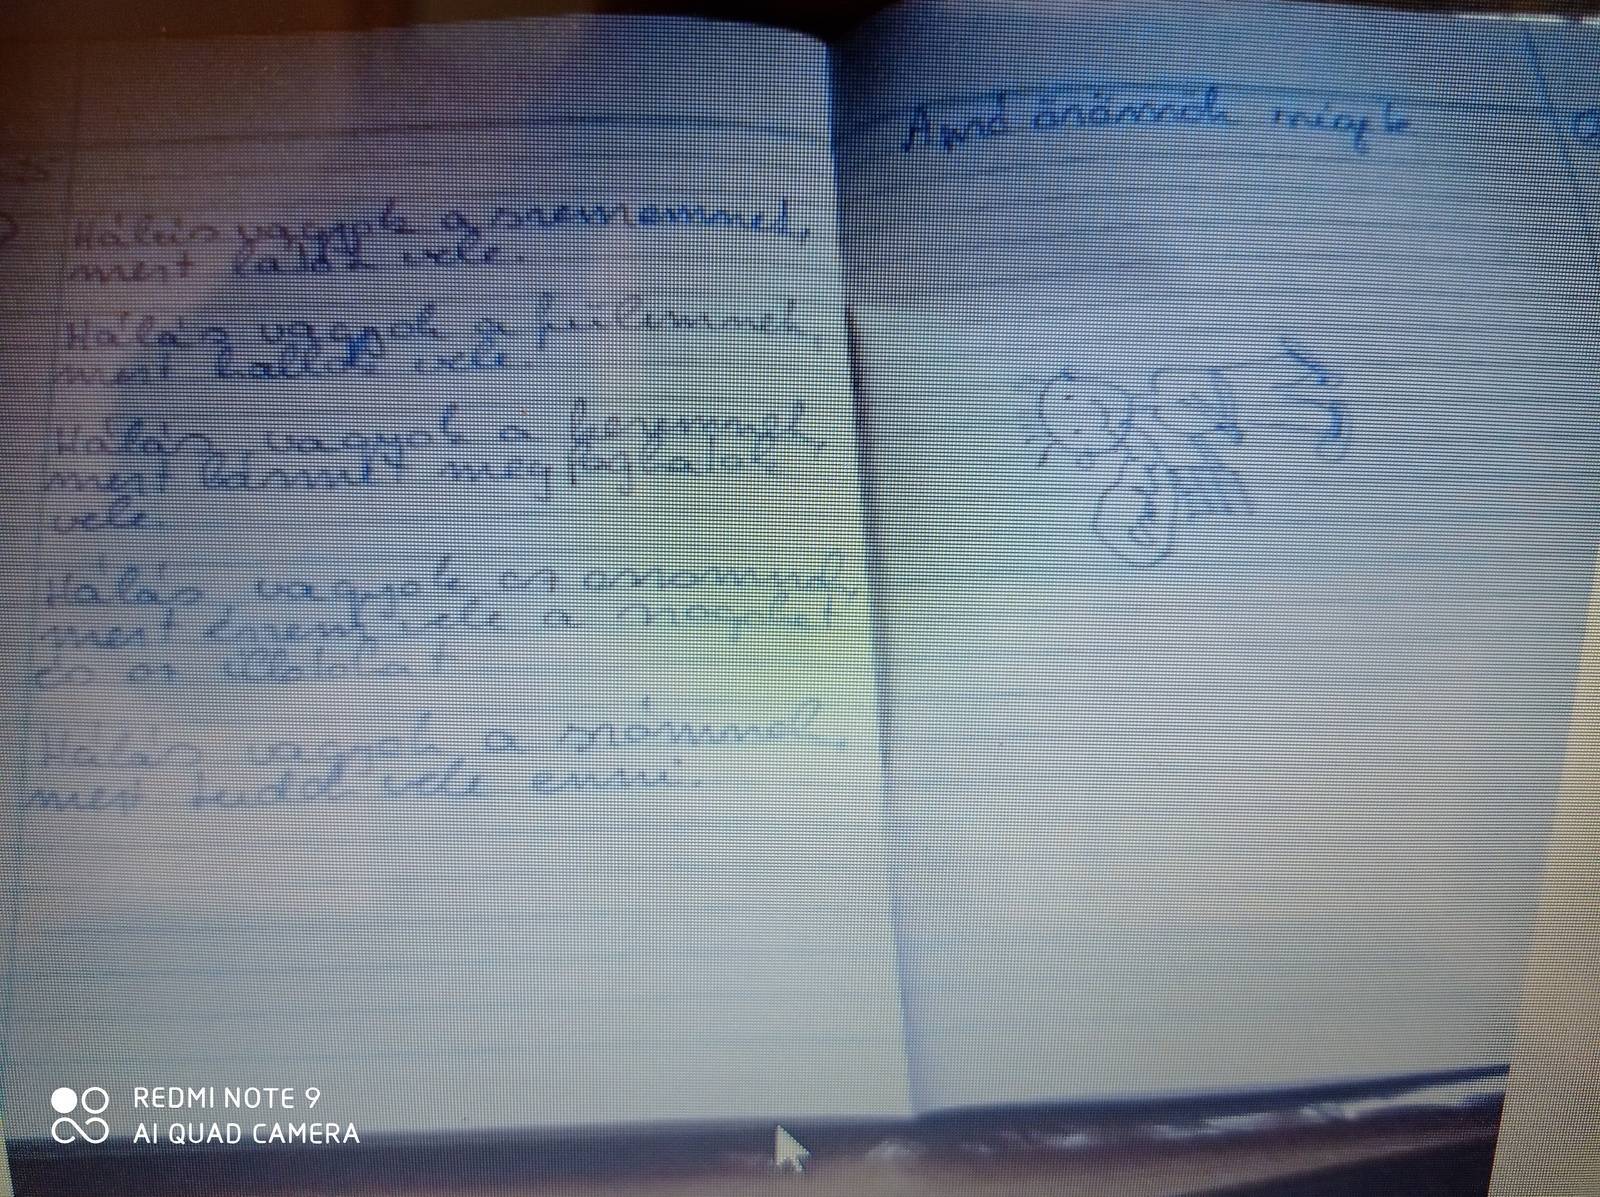 Hálás vagyok a szememnek,
mert látok vele.
Hálás vagyok a fülemnek,
mert hallok vele.
Hálás vagyok a kezemnek,
mert bármit megfoghatok
vele.
Hálás vagyok az orromnak
mert érzem vele a szagokat
és az illatokat
Hálás vagyok a számnak,
mert tudok vele enni.
Apró örömnök
REDMI NOTE 9
AI QUAD CAMERA